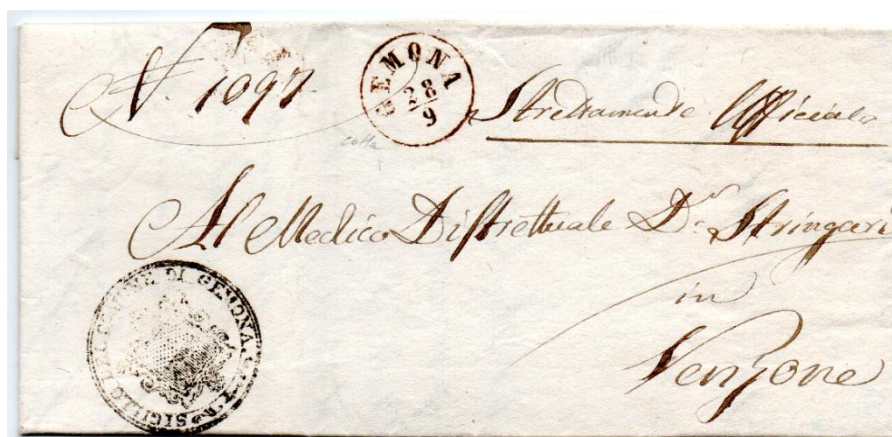 N. 1097
GEMONA
28/9
Strettamente Officiale
Al Medico Distrettuale Dr. Stringari
in
Venzone
SIGILLO DEL COMUNE DI GEMONA